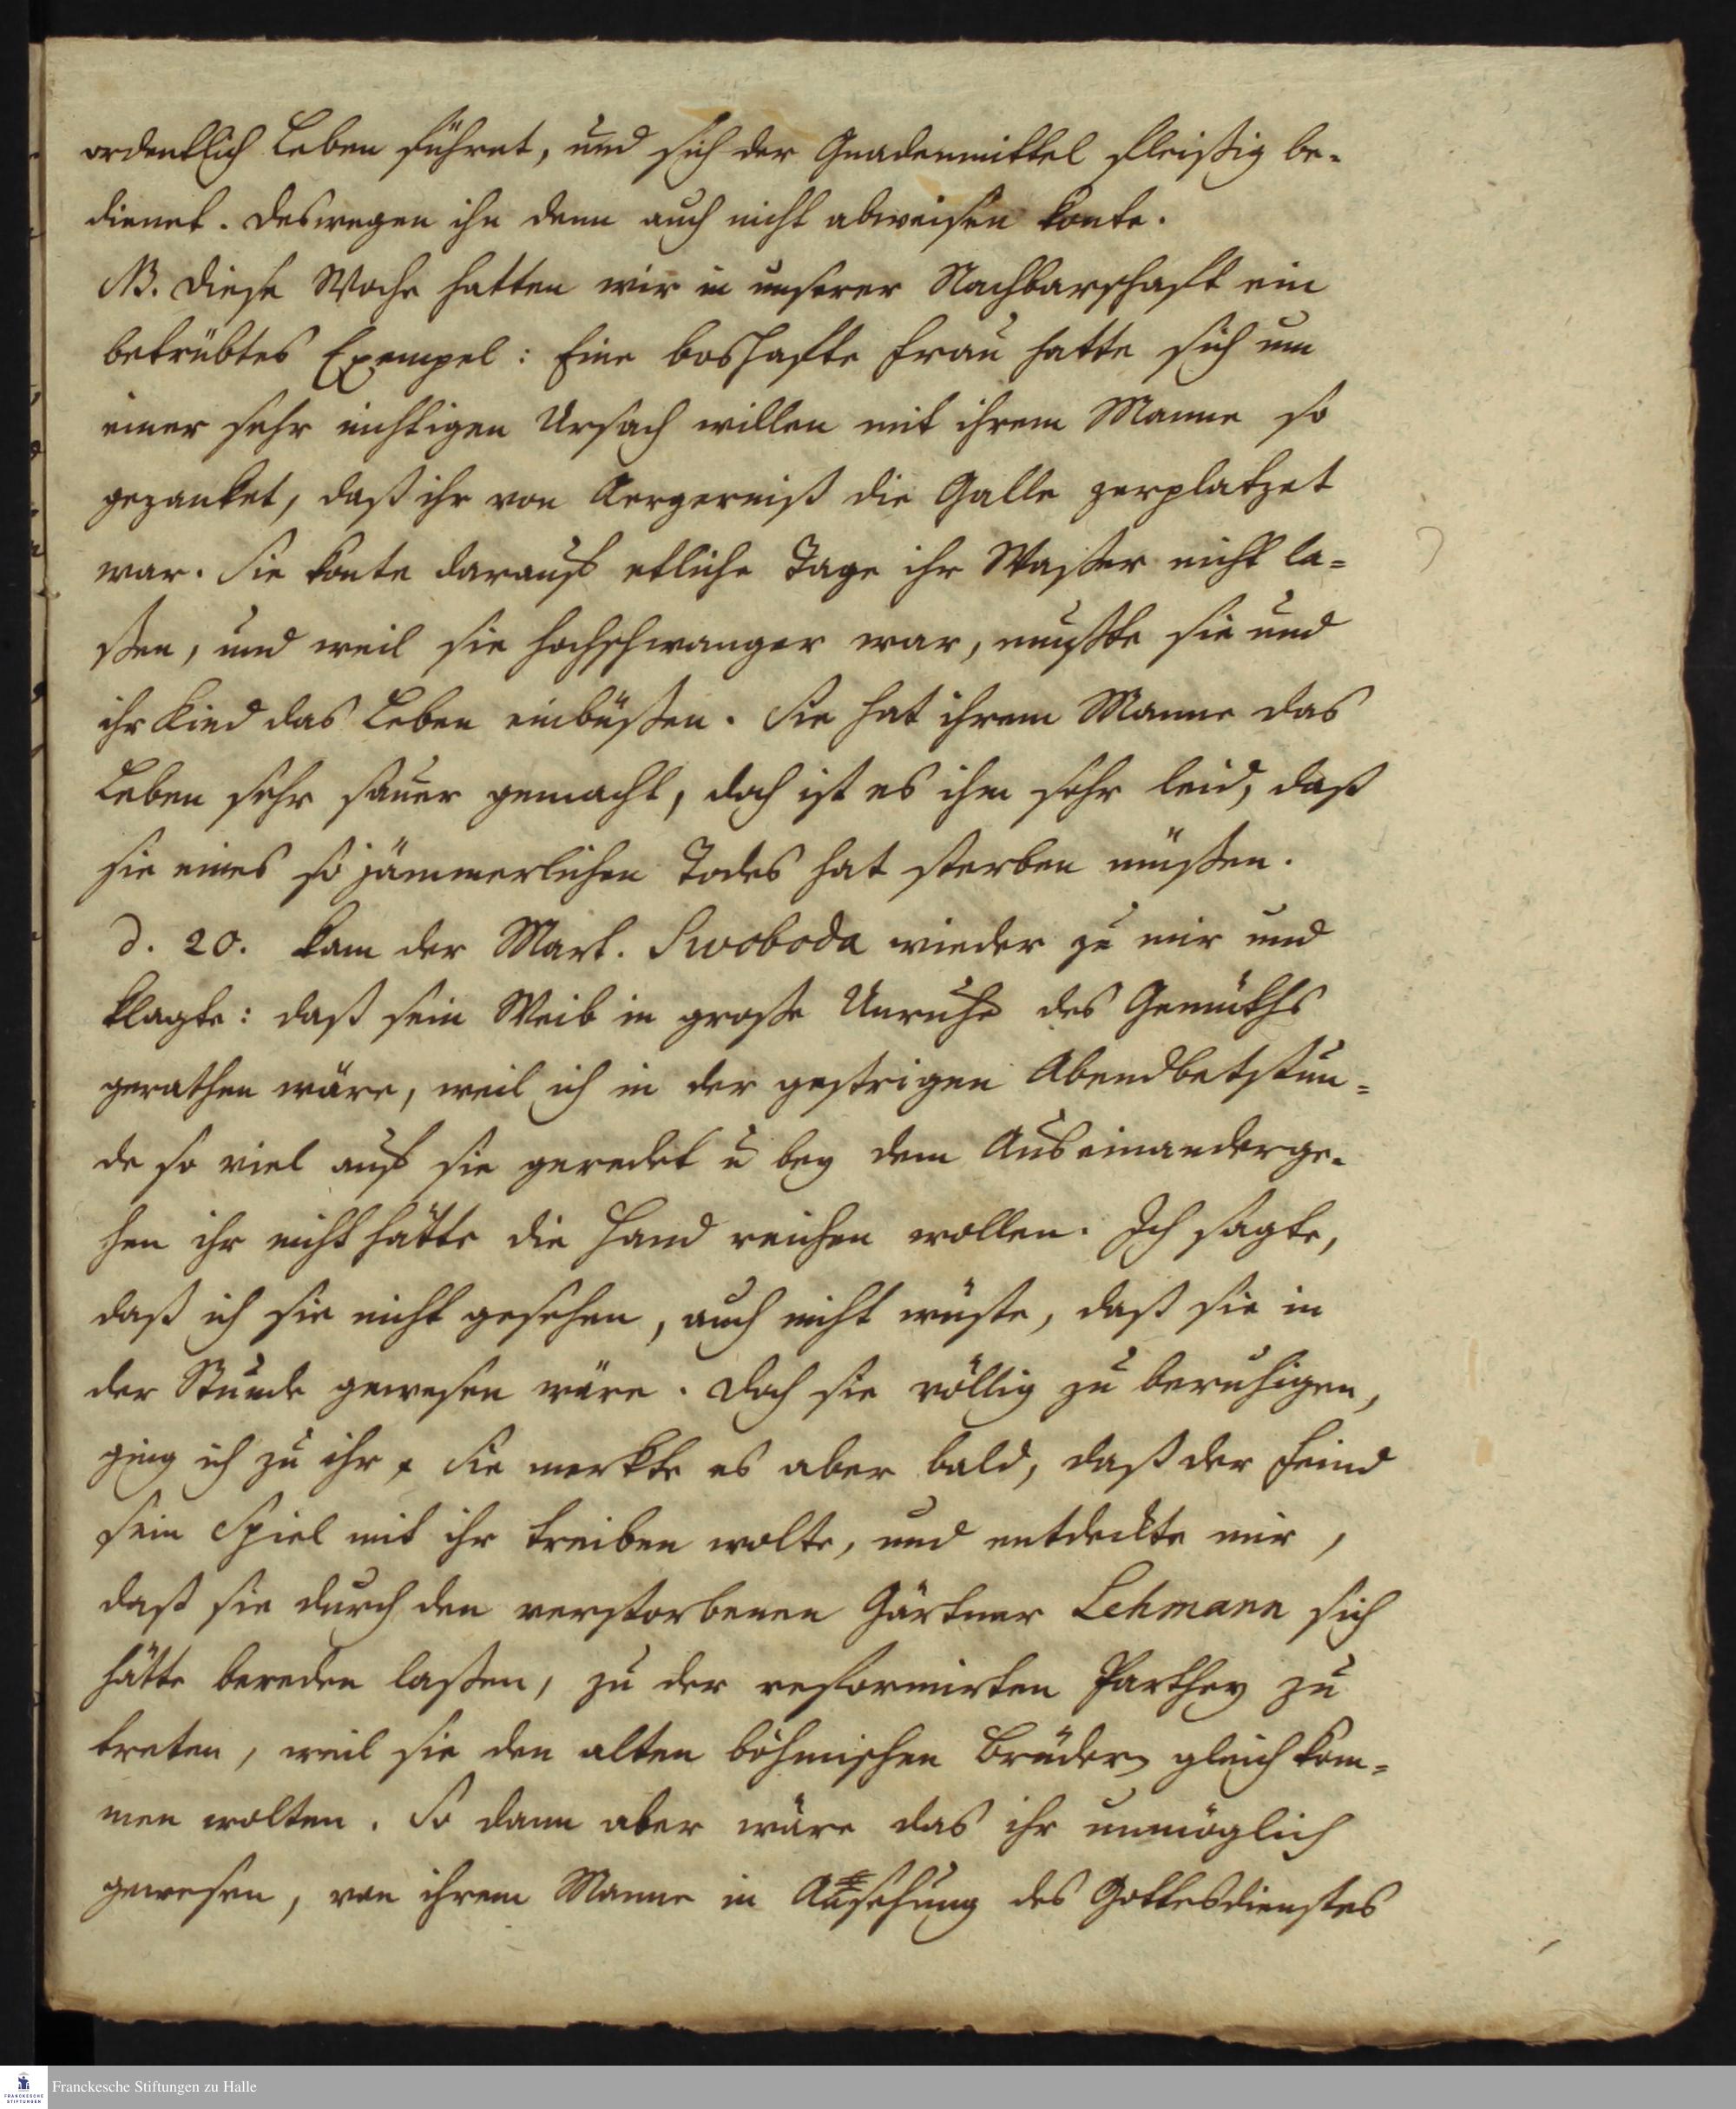 ordentlich Leben führet, und sich der Gnadenmittel fleißig be-
dienet. Deswegen ihn denn auch nicht abweisen konte.
NB. Diese Woche hatten wir in unserer Nachbarschaft ein
betrübtes Exempel: Eine boshafte Frau hatte sich um
einer sehr nichtigen Ursach willen mit ihrem Manne so
gezanket, daß ihr von Aergerniß die Galle zerplatzet
war. Sie konte darauf etliche Tage ihr Waßer nicht la-
ßen, und weil sie hochschwanger war, mußte sie und
ihr Kind das Leben einbüßen. Sie hat ihrem Manne das
Leben sehr sauer gemacht, doch ist es ihm sehr leid, daß
sie eines so jämmerlichen Todes hat sterben müßen.
d. 20. kam der Mart. Swoboda wieder zu mir und
klagte: daß sein Weib in große Unruhe des Gemüths
gerathen wäre, weil ich in der gestrigen Abendbetstun-
de so viel auf sie geredet u bey dem Auseinanderge-
hen ihr nicht hätte die Hand reichen wollen. Ich sagte,
daß ich sie nicht gesehen, auch nicht wüste, daß sie in
der Stunde gewesen wäre. Doch sie völlig zu beruhigen,
ging ich zu ihr, Sie merkte es aber bald, daß der Feind
sein Spiel mit ihr treiben wolte, und entdeckte mir,
daß sie durch den verstorbenen Gärtner Lehmann sich
hätte bereden laßen, zu der reformirten Parthey zu
treten, weil sie den alten böhmischen Brüdern gleich kom-
men wolten. So dann aber wäre das ihr unmöglich
gewesen, von ihrem Manne in Ansehung des Gottesdienstes
Franckesche Stiftungen zu Halle
FRANCKESCHE
STIFTUNGEN